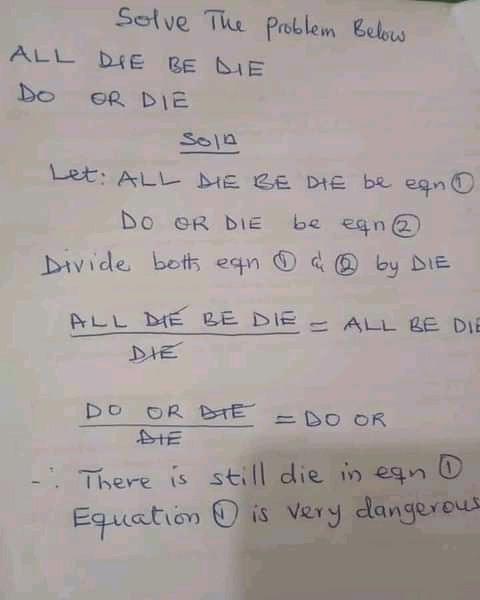 Solve The Problem Below
ALL DIE BE DIE
DO OR DIE
Soln
Let: ALL DIE BE DIE be eqn ①
DO OR DIE be eqn ②
Divide both eqn ① & ② by DIE
ALL DIE BE DIE = ALL BE DIE
DIE
DO OR DIE = DO OR
DIE
∴ There is still die in eqn ①
Equation ① is very dangerous